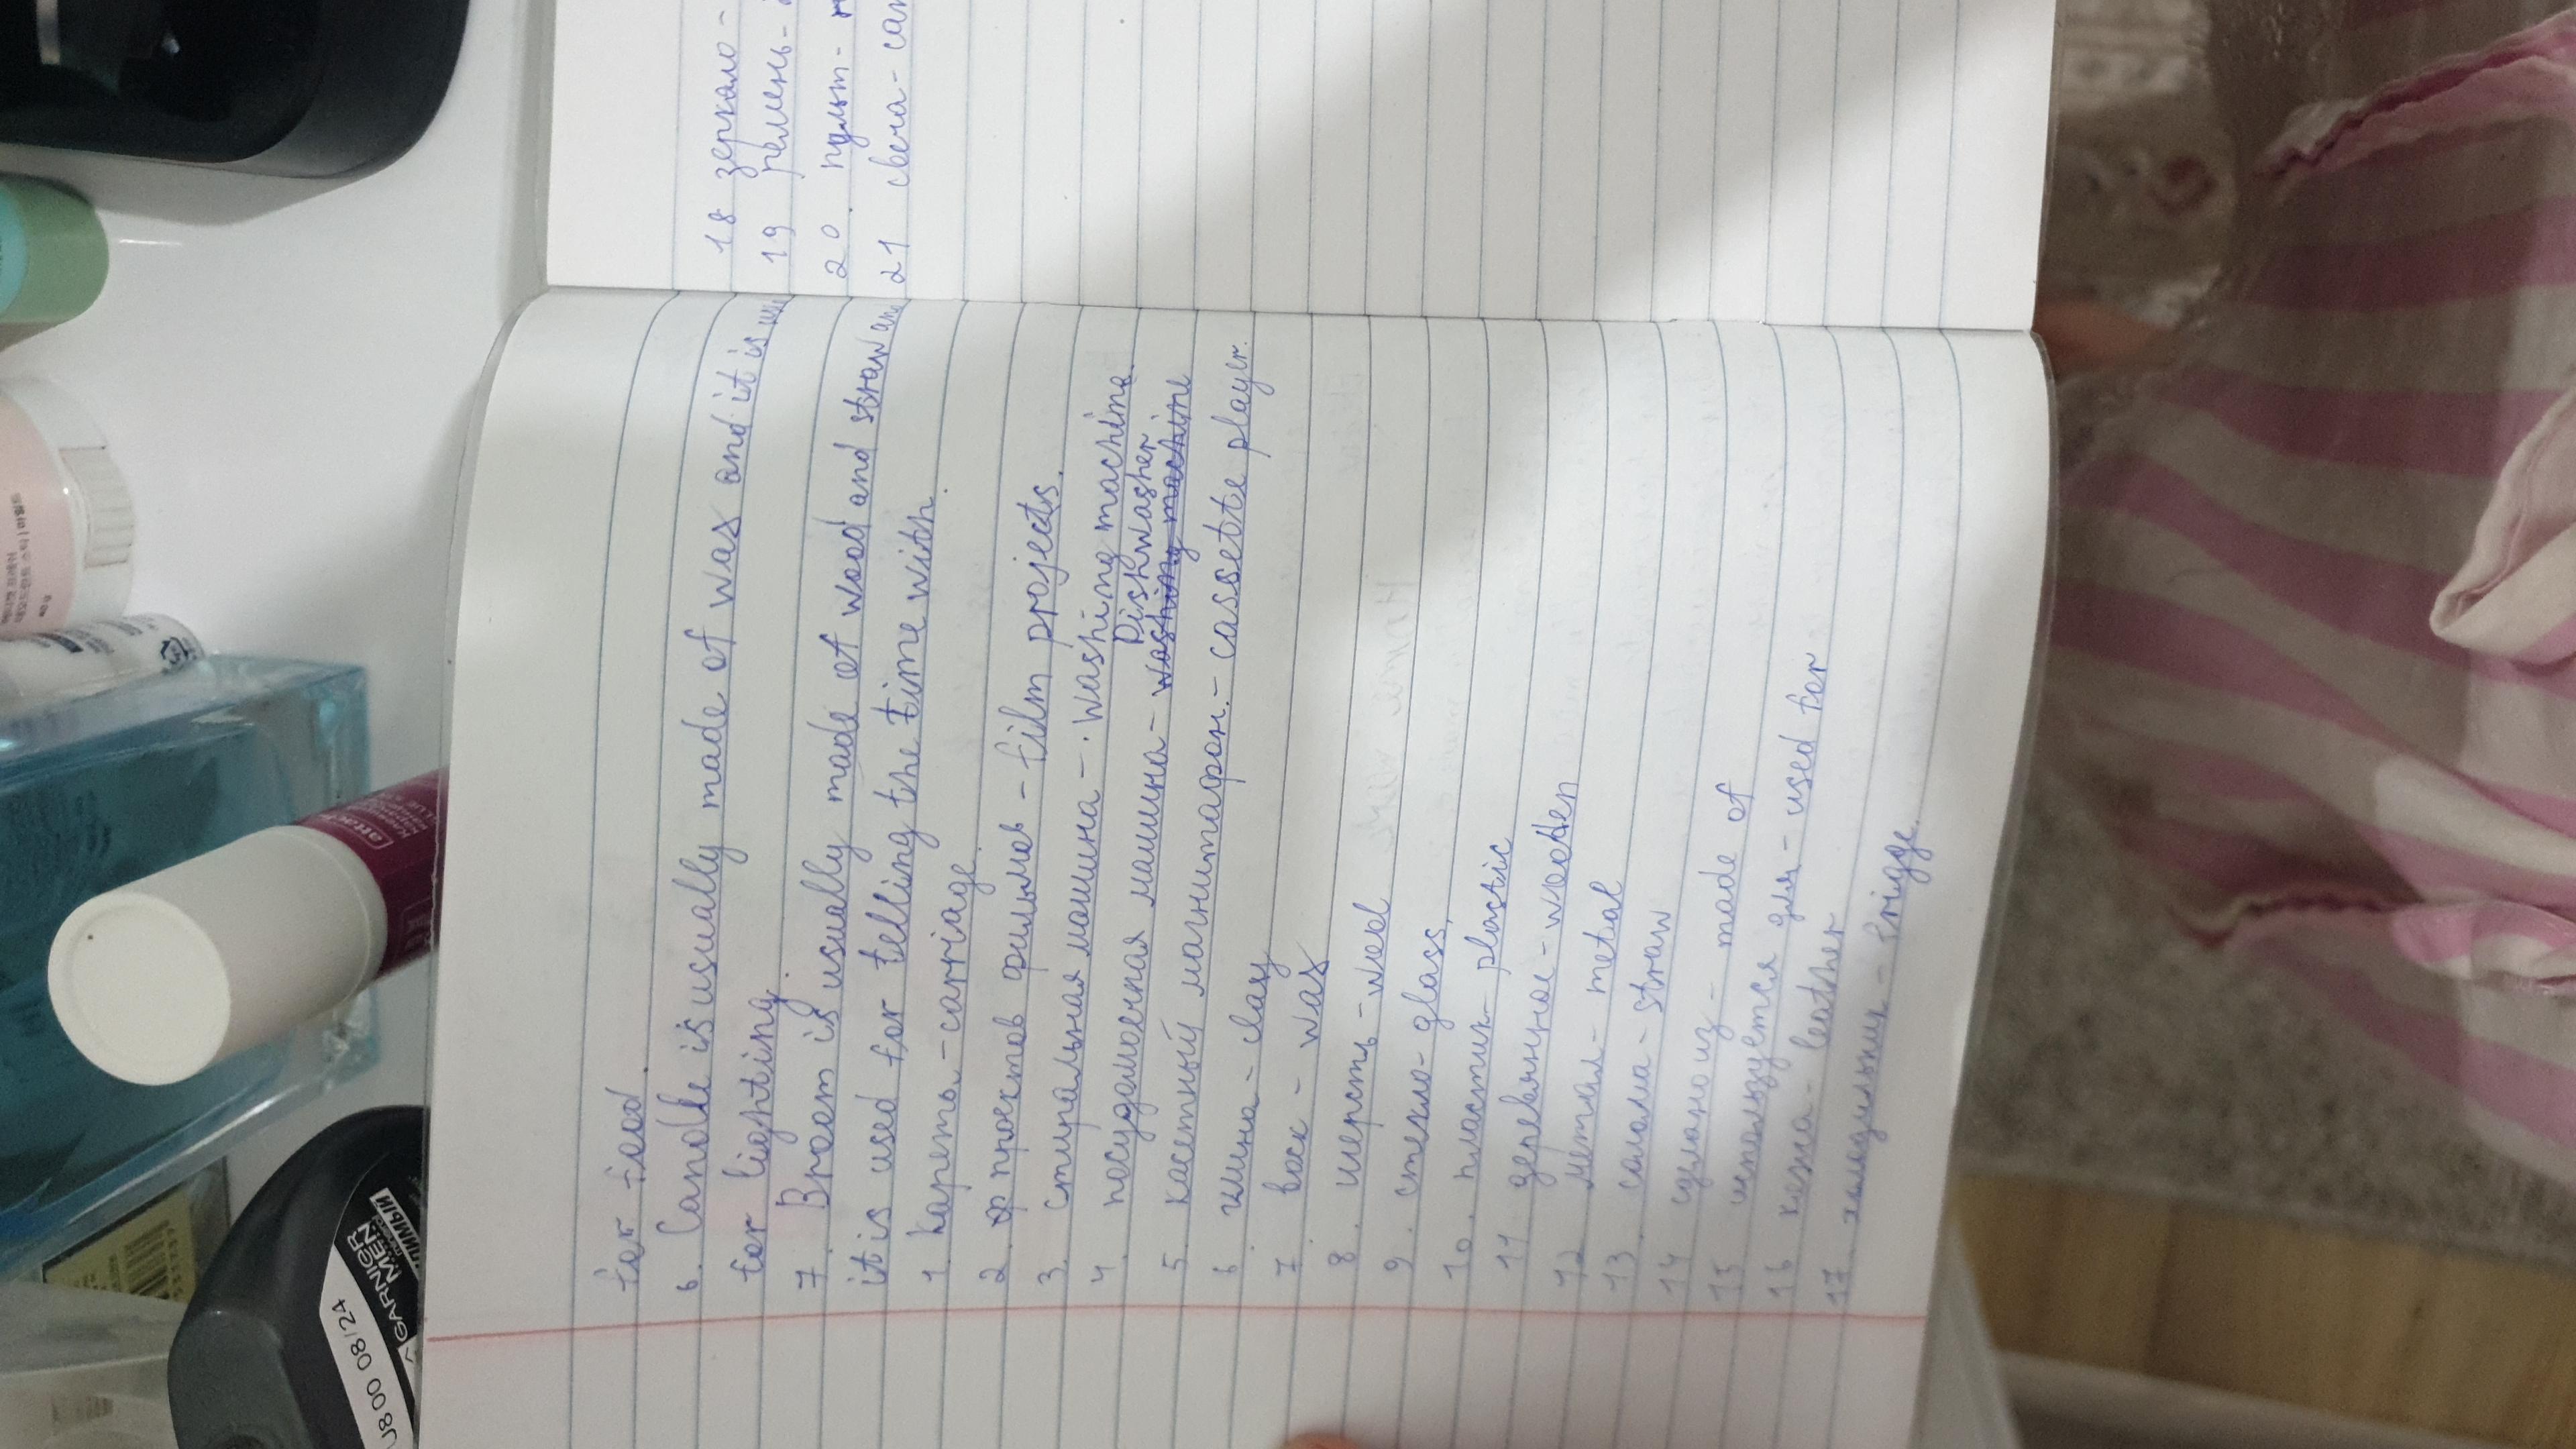 for food.
6. Candle is usually made of wax and it is
for lighting.
7. Broom is usually made of wood and straw and
it is used for telling the time with.
1. карета - carriage.
2. проектов фильмов - film projects.
3. стиральная машина - washing machine.
Dishwasher
4. посудомоечная машина - washing machine
5. касетный магнитафон. - cassette player.
6. глина - clay
7. воск - wax
8. шерсть - wool
9. стекло - glass.
10. пластик - plastic
11 деревянное - wooden
12 метал - metal
13. салома - straw
14 сделано из - made of
15 используется для - used for
16 кожа - leather
17. халадильник - fridge.
18 зеркало -
19 ремень -
20. пульт -
21 свеча -
U8 00 08/24
GARNIER
MEN